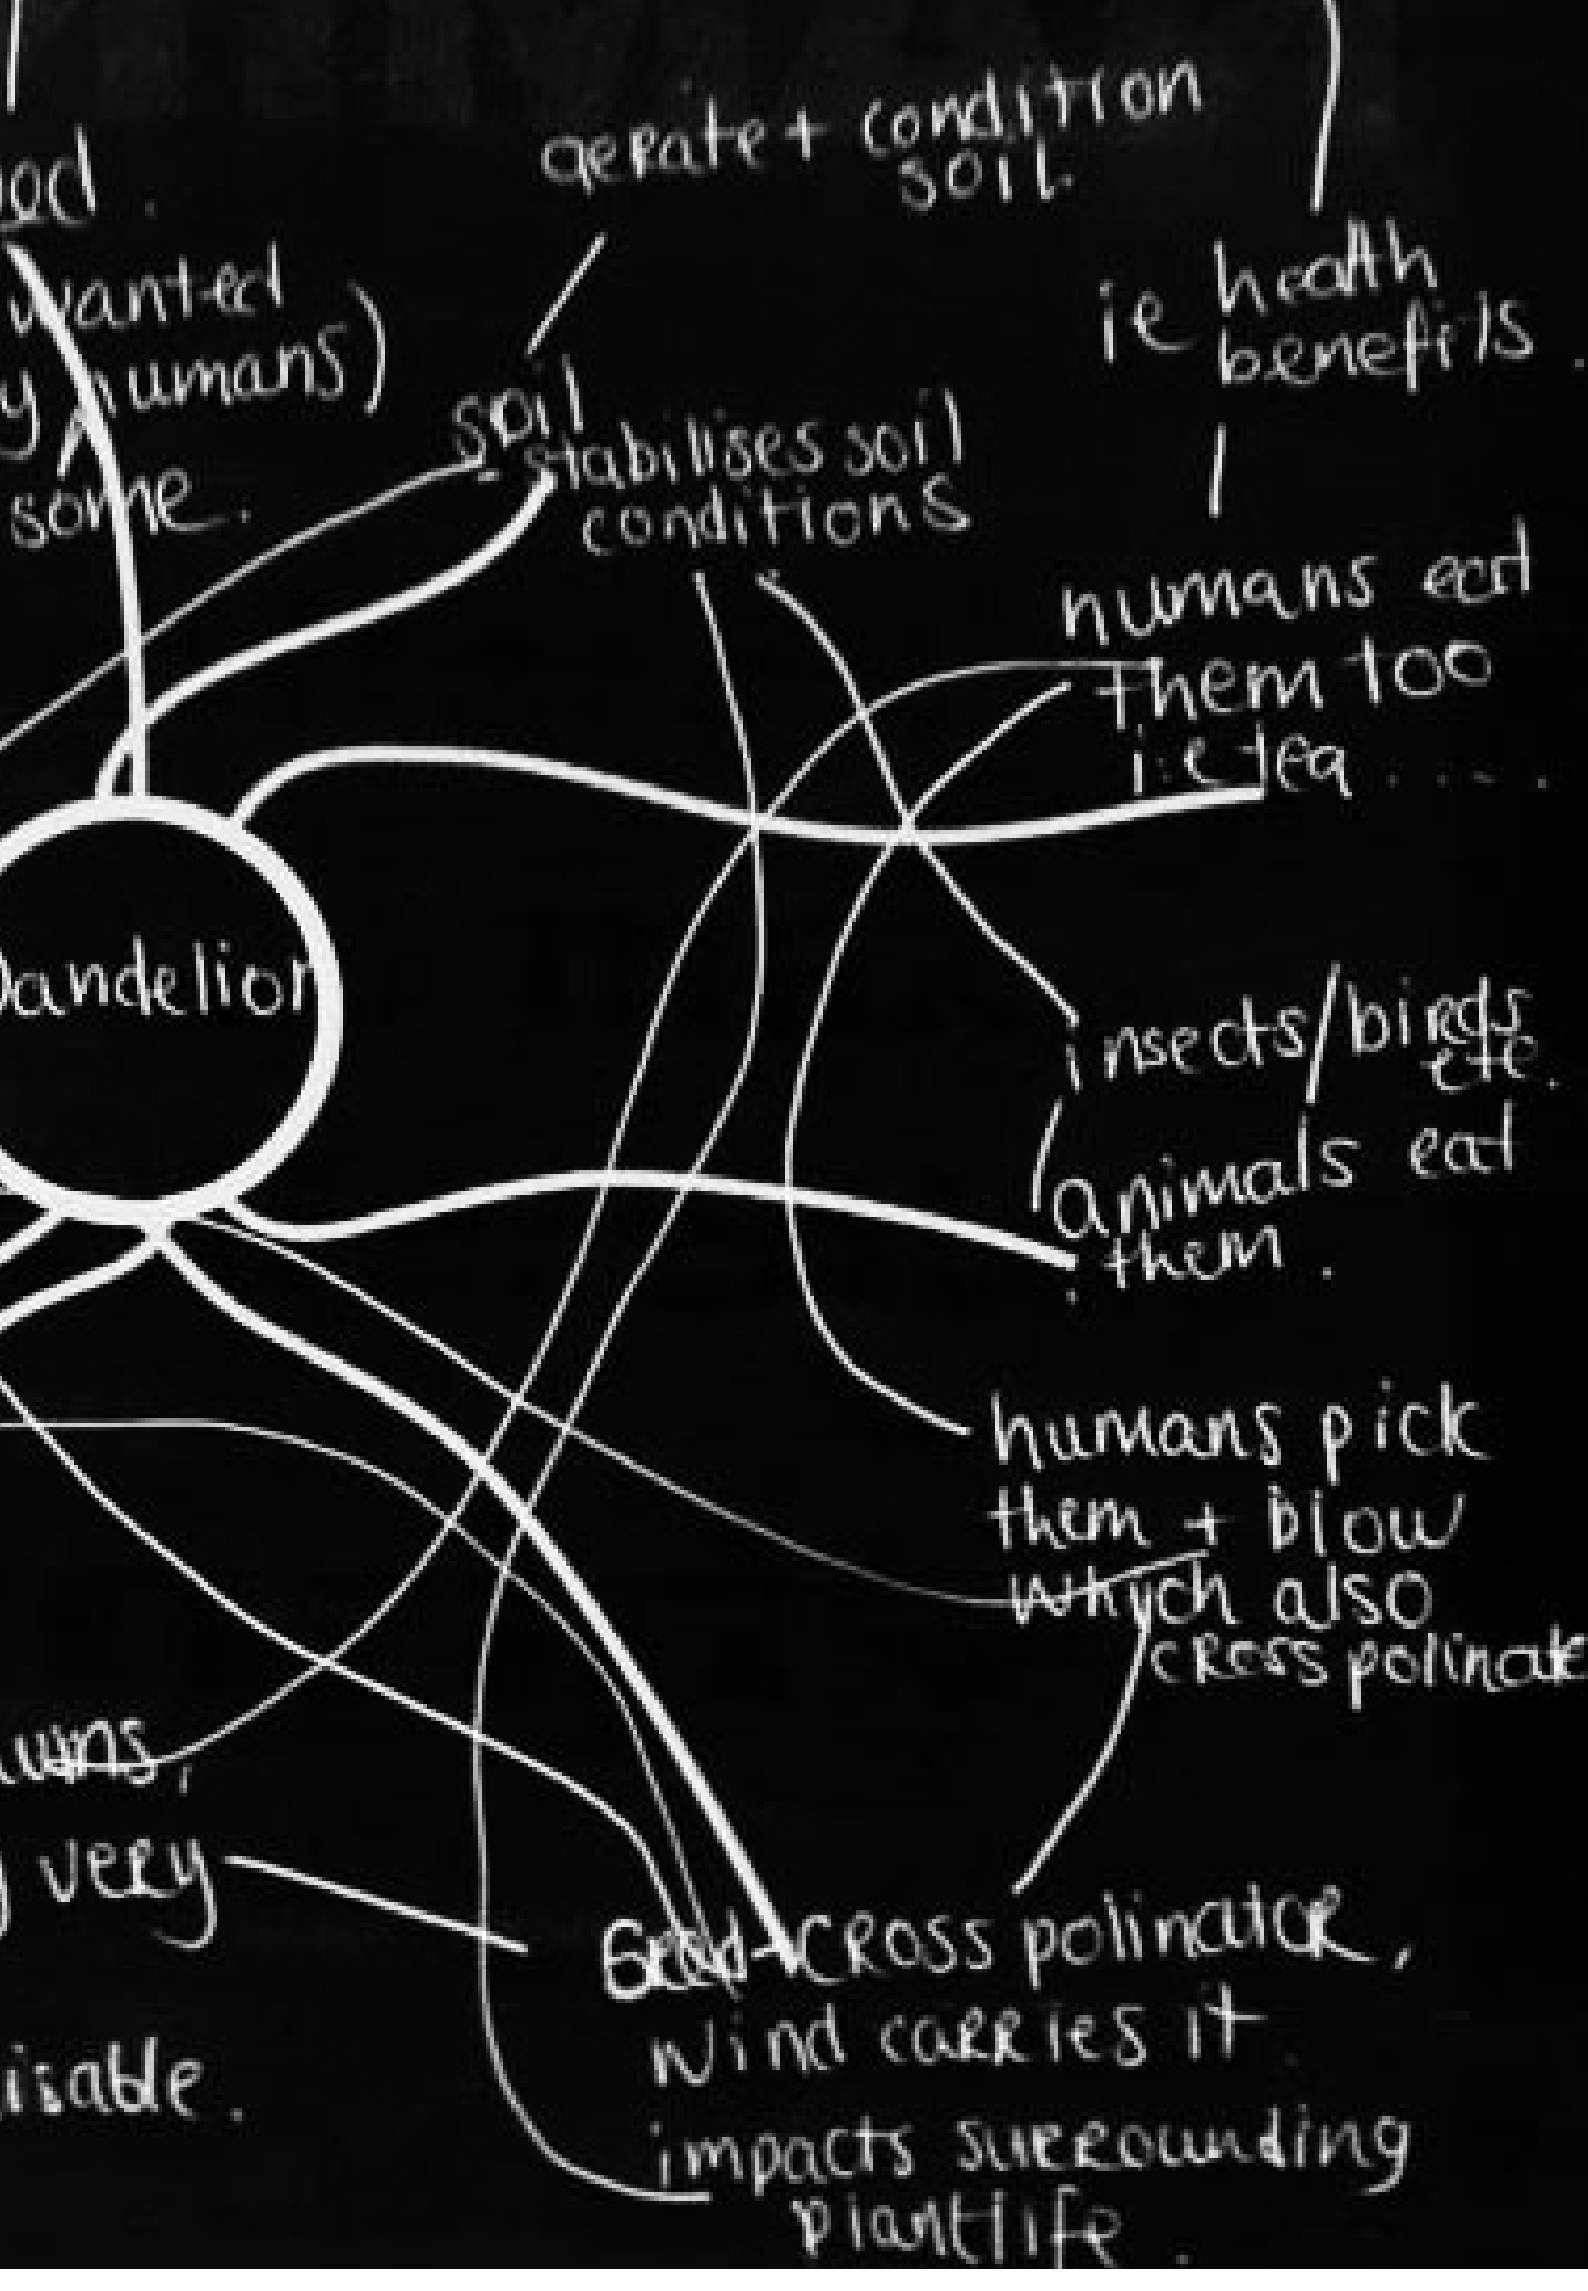 aerate + condition
soil.
ie health
benefits.
wanted
humans)
some.
soil
stabilises soil
conditions
humans eat
them too
i.e tea . . . .
Dandelion
insects/birds
etc.
animals eat
them.
humans pick
them + blow
which also
cross polinate
very
cross polinator,
wind carries it
impacts surrounding
plantlife.